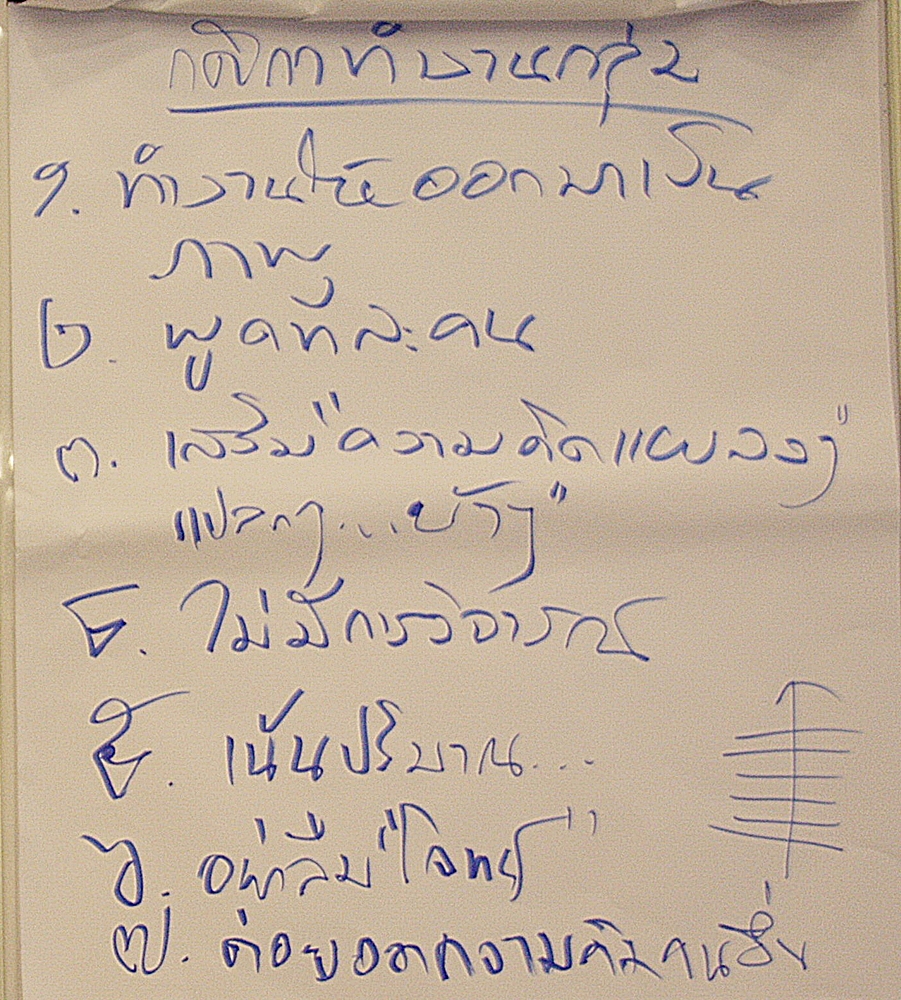 กติกาทำงานกลุ่ม
๑. ทำงานให้ออกมาเป็น
ภาพ
๒. พูดทีละคน
๓. เสริม "ความคิดแผลงๆ"
แปลกๆ...บ้าๆ"
๔. ไม่มีการวิจารณ์
๕. เน้นปริมาณ...
๖. อย่าลืม "โจทย์"
๗. ต่อยอดความคิดคนอื่น